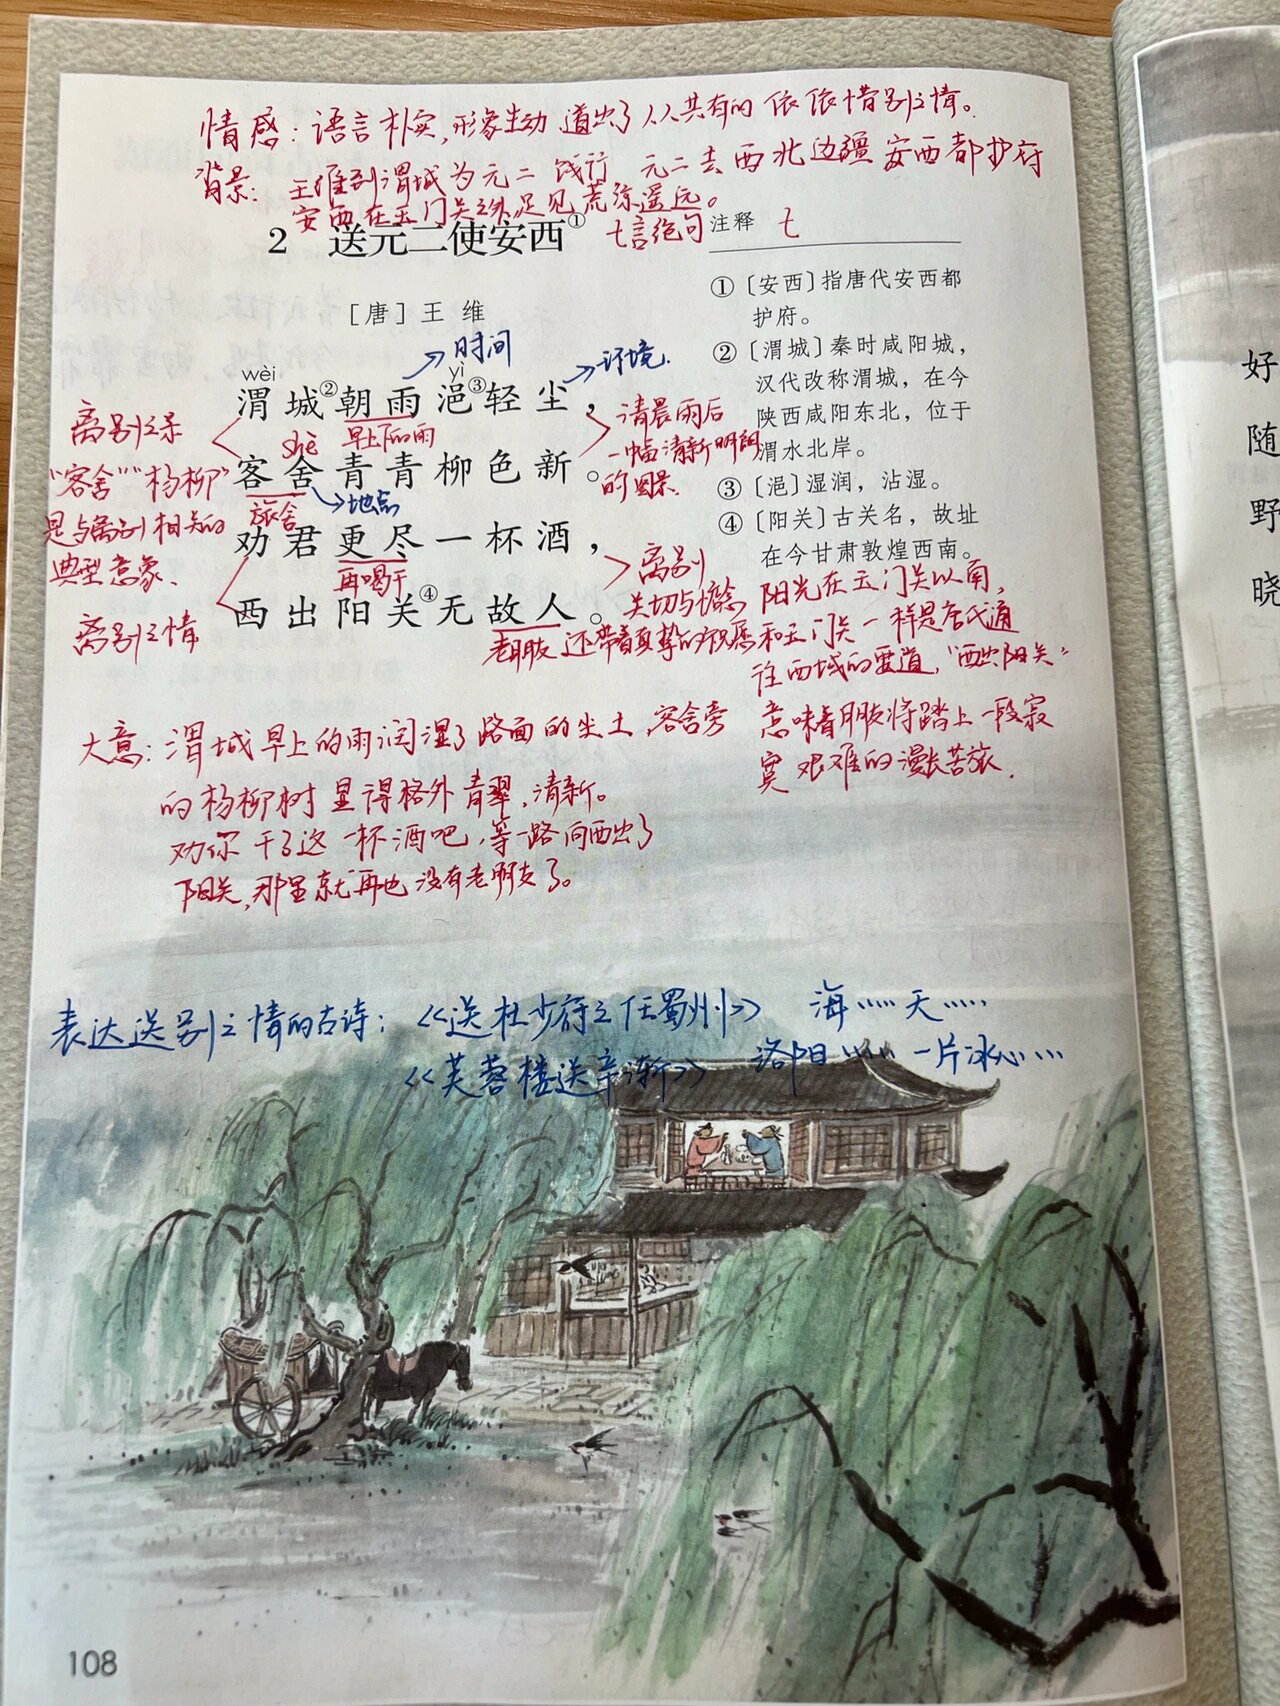 情感：语言朴实，形象生动 道出了人人共有的 依依惜别之情。
背景：王维到渭城为元二 饯行 元二去西北边疆 安西都护府
安西在玉门关之外足见荒凉遥远。
2 送元二使安西①
七言绝句
注释 七
[唐] 王 维
→时间
→环境.
wèi yì
渭城②朝雨浥③轻尘，
shè
早上下的雨
客舍青青柳色新。
旅舍
→地点
劝君更尽一杯酒，
再喝干
西出阳关④无故人。
老朋友
离别之景
“客舍”“杨柳”
是与离别相关的
典型意象、
离别之情
清晨雨后
一幅清新明朗
的图景.
离别
关切与惦念
还带着真挚的祝愿
①〔安西〕指唐代安西都
护府。
②〔渭城〕秦时咸阳城，
汉代改称渭城，在今
陕西咸阳东北，位于
渭水北岸。
③〔浥〕湿润，沾湿。
④〔阳关〕古关名，故址
在今甘肃敦煌西南。
阳光在玉门关以南，
和玉门关一样是唐代通
往西域的要道，“西出阳关”
意味着朋友将踏上一段寂
寞 艰难的漫长苦旅.
大意：渭城早上的雨润湿了路面的尘土，客舍旁
的杨柳树 显得格外青翠，清新。
劝你 干了这一杯酒吧，等一路向西出了
阳关，那里就再也没有老朋友了。
表达送别之情的古诗：《送杜少府之任蜀州》 海…… 天……
《芙蓉楼送辛渐》 洛阳…… 一片冰心…
108
好
随
野
晓